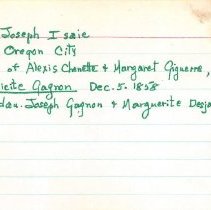 Joseph Isaie
Oregon City
of Alexis Chenette & Margaret Giguerre,
Gagnon Dec. 5. 1858
dau. Joseph Gagnon & Marguerite